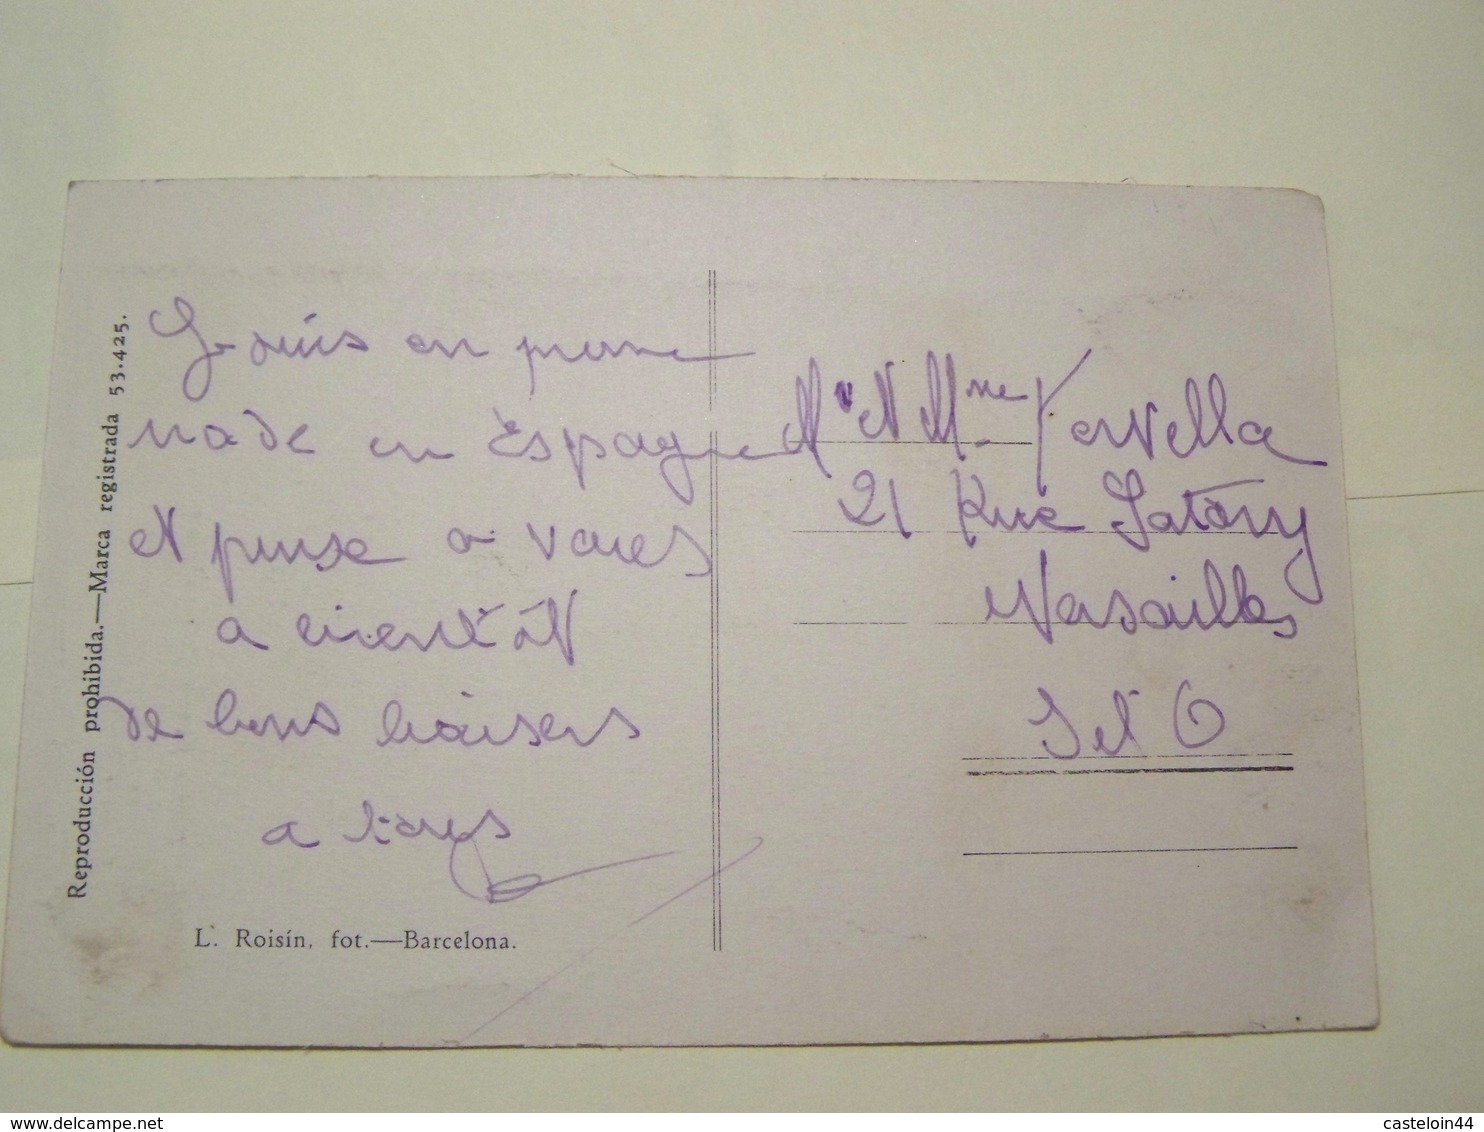 Je suis en prome
nade en Espagne
et pense a vous
a bientôt
de bons baisers
a tous
Mr et Mme Kervella
21 Rue Satory
Versailles
S et O
Reproducción prohibida.—Marca registrada 53.425.
L. Roisín, fot.—Barcelona.
casteloin44